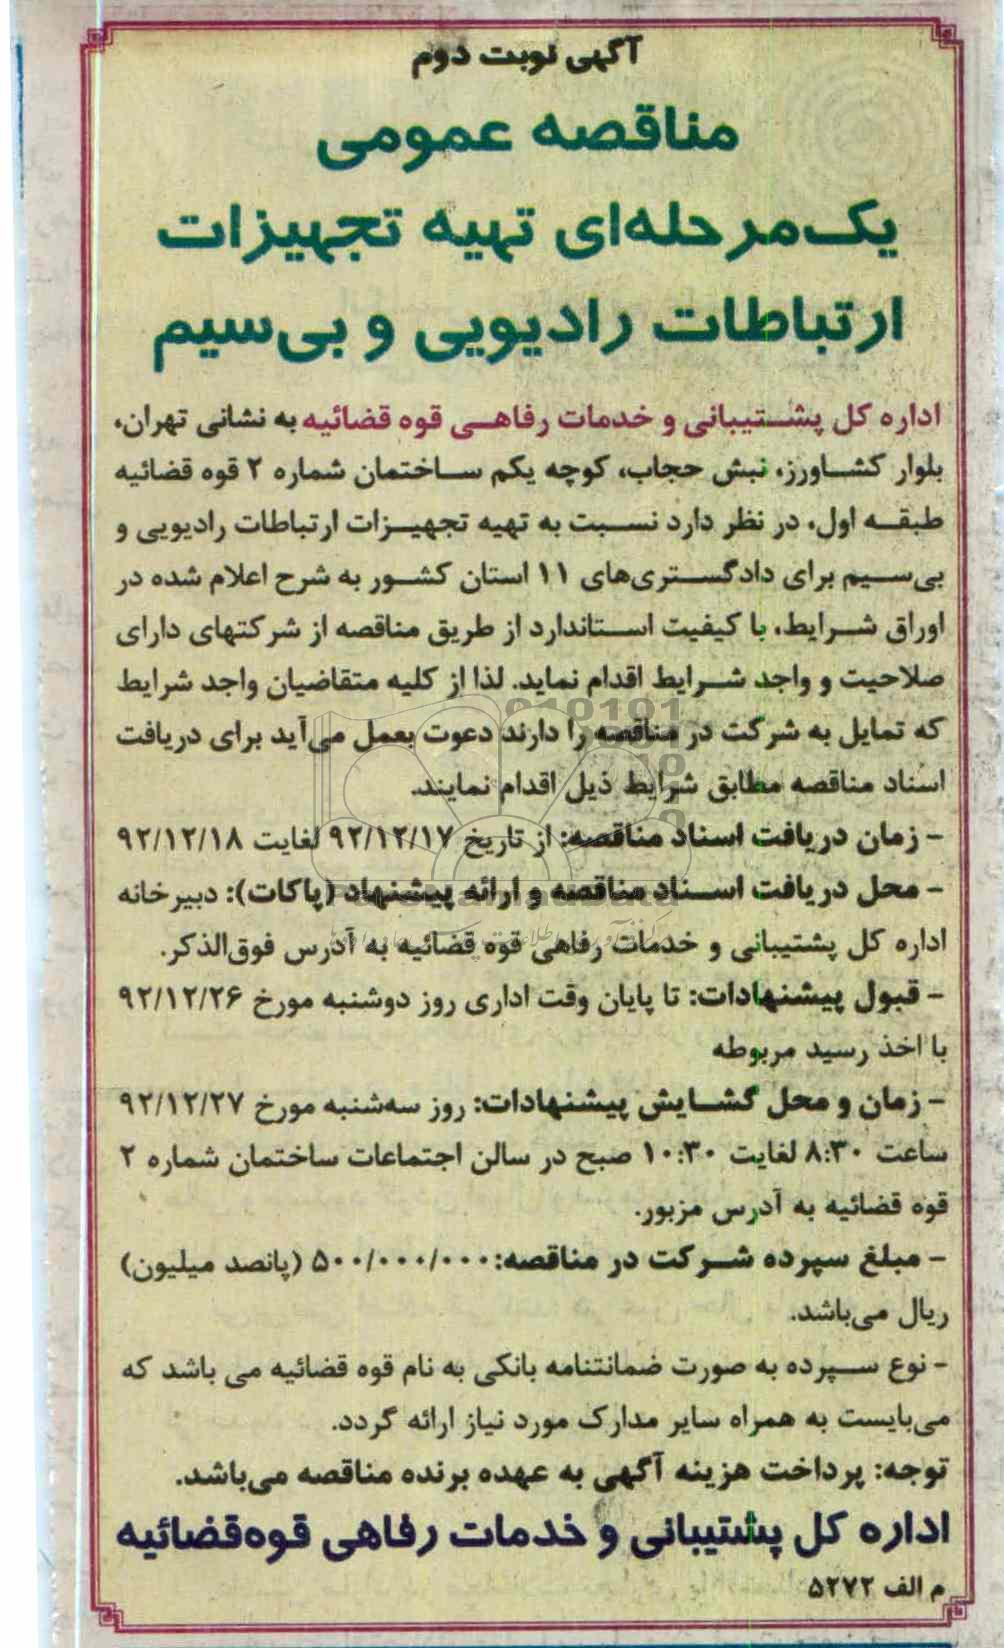 آگهی نوبت دوم
مناقصه عمومی
یک‌مرحله‌ای تهیه تجهیزات
ارتباطات رادیویی و بی‌سیم
اداره کل پشتیبانی و خدمات رفاهی قوه قضائیه به نشانی تهران،
بلوار کشاورز، نبش حجاب، کوچه یکم ساختمان شماره ۲ قوه قضائیه
طبقه اول، در نظر دارد نسبت به تهیه تجهیزات ارتباطات رادیویی و
بی‌سیم برای دادگستری‌های ۱۱ استان کشور به شرح اعلام شده در
اوراق شرایط، با کیفیت استاندارد از طریق مناقصه از شرکتهای دارای
صلاحیت و واجد شرایط اقدام نماید. لذا از کلیه متقاضیان واجد شرایط
که تمایل به شرکت در مناقصه را دارند دعوت بعمل می‌آید برای دریافت
اسناد مناقصه مطابق شرایط ذیل اقدام نمایند.
- زمان دریافت اسناد مناقصه: از تاریخ ۹۲/۱۲/۱۷ لغایت ۹۲/۱۲/۱۸
- محل دریافت اسناد مناقصه و ارائه پیشنهاد (پاکات): دبیرخانه
اداره کل پشتیبانی و خدمات رفاهی قوه قضائیه به آدرس فوق‌الذکر.
- قبول پیشنهادات: تا پایان وقت اداری روز دوشنبه مورخ ۹۲/۱۲/۲۶
با اخذ رسید مربوطه
- زمان و محل گشایش پیشنهادات: روز سه‌شنبه مورخ ۹۲/۱۲/۲۷
ساعت ۸:۳۰ لغایت ۱۰:۳۰ صبح در سالن اجتماعات ساختمان شماره ۲
قوه قضائیه به آدرس مزبور.
- مبلغ سپرده شرکت در مناقصه: ۵۰۰/۰۰۰/۰۰۰ (پانصد میلیون)
ریال می‌باشد.
- نوع سپرده به صورت ضمانتنامه بانکی به نام قوه قضائیه می باشد که
می‌بایست به همراه سایر مدارک مورد نیاز ارائه گردد.
توجه: پرداخت هزینه آگهی به عهده برنده مناقصه می‌باشد.
اداره کل پشتیبانی و خدمات رفاهی قوه‌قضائیه
م الف ۵۲۷۲